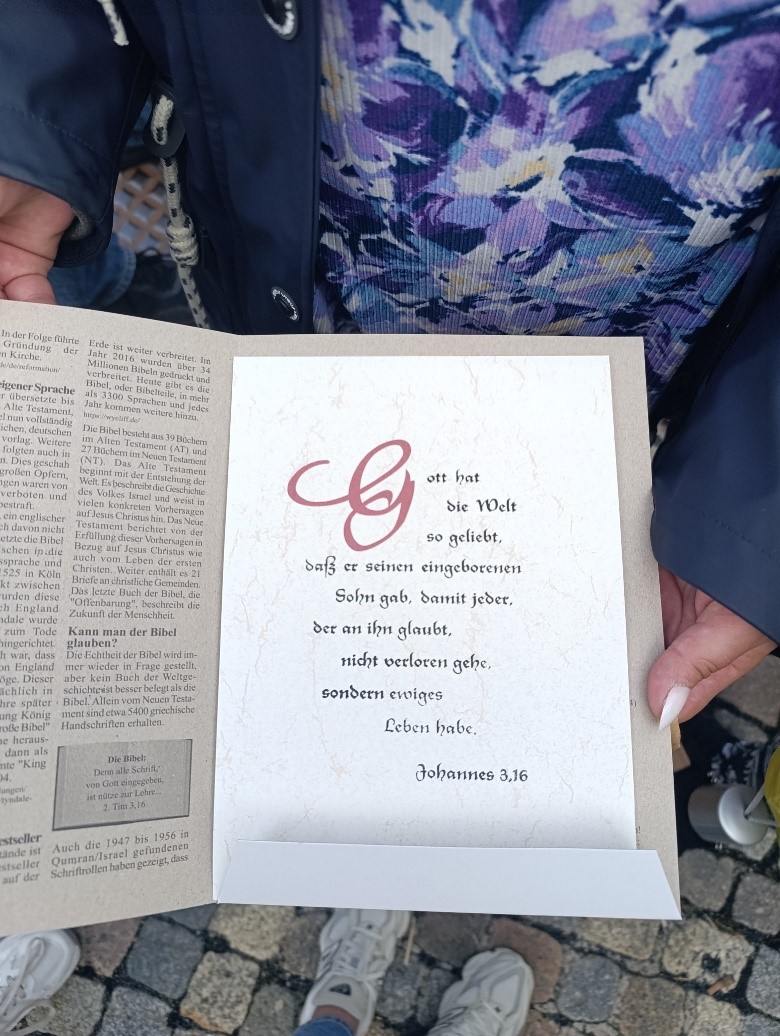 In der Folge führte
Gründung der
n Kirche.
de/de/reformation/
eigener Sprache
übersetzte bis
Alte Testament,
el nun vollständig
ichen, deutschen
vorlag. Weitere
folgten auch in
n. Dies geschah
großen Opfern,
ngen waren von
verboten und
bestraft.
ein englischer
ch davon nicht
etzte die Bibel
schen in die
ssprache und
1525 in Köln
kt zwischen
urden diese
ch England
ndale wurde
zum Tode
hingerichtet.
h war, dass
on England
öge. Dieser
ächlich in
hre später
ung König
roße Bibel"
he heraus-
dann als
nte "King
04.
ungen/
tyndale-
estseller
tände ist
estseller
auf der
Erde ist weiter verbreitet. Im
Jahr 2016 wurden über 34
Millionen Bibeln gedruckt und
verbreitet. Heute gibt es die
Bibel, oder Bibelteile, in mehr
als 3300 Sprachen und jedes
Jahr kommen weitere hinzu.
https://wycliff.de/
Die Bibel besteht aus 39 Büchern
im Alten Testament (AT) und
27 Büchern im Neuen Testament
(NT). Das Alte Testament
beginnt mit der Entstehung der
Welt. Es beschreibt die Geschichte
des Volkes Israel und weist in
vielen konkreten Vorhersagen
auf Jesus Christus hin. Das Neue
Testament berichtet von der
Erfüllung dieser Vorhersagen in
Bezug auf Jesus Christus wie
auch vom Leben der ersten
Christen. Weiter enthält es 21
Briefe an christliche Gemeinden.
Das letzte Buch der Bibel, die
"Offenbarung", beschreibt die
Zukunft der Menschheit.
Kann man der Bibel
glauben?
Die Echtheit der Bibel wird im-
mer wieder in Frage gestellt,
aber kein Buch der Weltge-
schichte ist besser belegt als die
Bibel. Allein vom Neuen Testa-
ment sind etwa 5400 griechische
Handschriften erhalten.
Die Bibel:
Denn alle Schrift,
von Gott eingegeben,
ist nütze zur Lehre...
2. Tim 3,16
Auch die 1947 bis 1956 in
Qumran/Israel gefundenen
Schriftrollen haben gezeigt, dass
Gott hat
die Welt
so geliebt,
daß er seinen eingeborenen
Sohn gab, damit jeder,
der an ihn glaubt,
nicht verloren gehe,
sondern ewiges
Leben habe.
Johannes 3,16